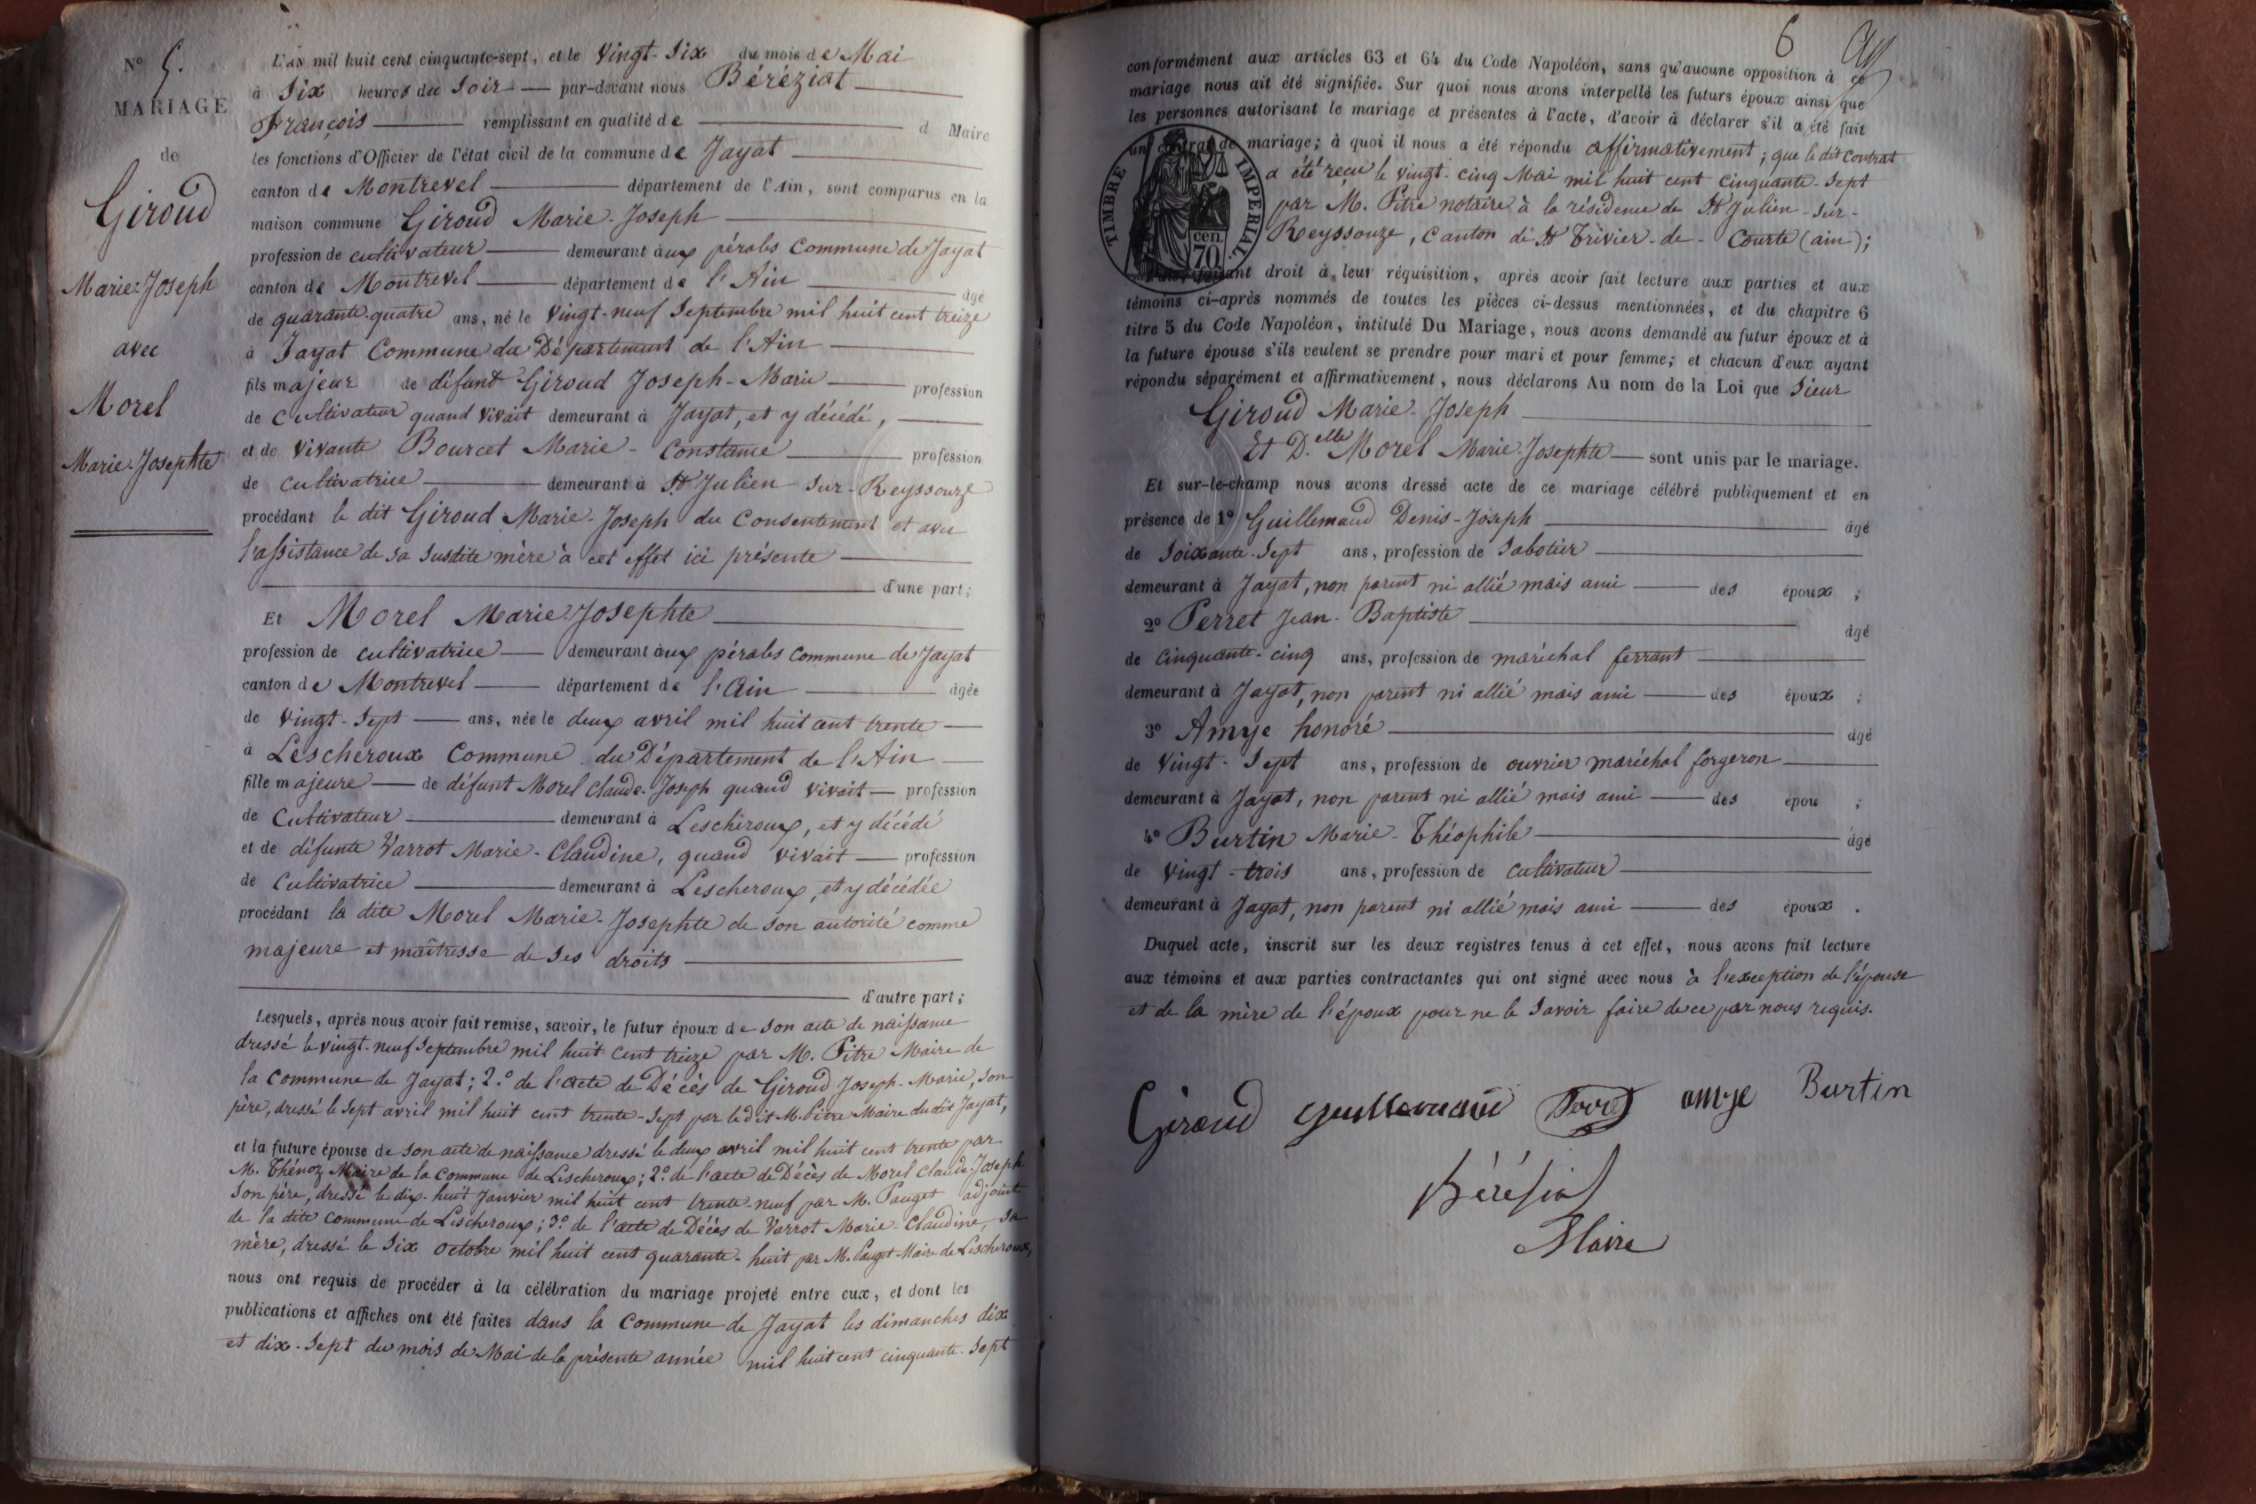 N° 5.
MARIAGE
de
Giroud
Marie-Joseph
avec
Morel
Marie-Josephte
L'an mil huit cent cinquante-sept, et le vingt-six du mois de Mai
à six heures du soir par-devant nous Béréziat
François remplissant en qualité de d Maire
les fonctions d'Officier de l'état civil de la commune de Jayat
canton de Montrevel département de l'Ain, sont comparus en la
maison commune Giroud Marie-Joseph
profession de cultivateur demeurant aux pérabs Commune de Jayat
canton de Montrevel département de l'Ain âgé
de quarante-quatre ans, né le vingt-neuf Septembre mil huit cent treize
à Jayat Commune du Département de l'Ain
fils majeur de défunt Giroud Joseph-Marie profession
de Cultivateur quand vivait demeurant à Jayat, et y décédé,
et de vivante Bourcet Marie-Constance profession
de cultivatrice demeurant à St Julien-sur-Reyssouze
procédant le dit Giroud Marie-Joseph du Consentement et avec
l'assistance de sa susdite mère à cet effet ici présente
d'une part;
Et Morel Marie-Josephte
profession de cultivatrice demeurant aux pérabs Commune de Jayat
canton de Montrevel département de l'Ain âgée
de vingt-sept ans, née le deux avril mil huit cent trente
à Lescheroux Commune du Département de l'Ain
fille majeure de défunt Morel Claude-Joseph quand vivait profession
de Cultivateur demeurant à Lescheroux, et y décédé
et de défunte Varrot Marie-Claudine, quand vivait profession
de Cultivatrice demeurant à Lescheroux, et y décédée
procédant la dite Morel Marie-Josephte de son autorité comme
majeure et maîtresse de ses droits
d'autre part;
Lesquels, après nous avoir fait remise, savoir, le futur époux de son acte de naissance
dressé le vingt-neuf Septembre mil huit cent treize par M. Pitre Maire de
la commune de Jayat; 2.° de l'acte de Décès de Giroud Joseph-Marie, son
père, dressé le sept avril mil huit cent trente-sept par le dit M. Pitre Maire du dit Jayat,
et la future épouse de son acte de naissance dressé le deux avril mil huit cent trente par
M. Thénoz Maire de la Commune de Lescheroux; 2.° de l'acte de Décès de Morel Claude-Joseph
son père, dressé le dix-huit Janvier mil huit cent trente-neuf par M. Pauget adjoint
de la dite commune de Lescheroux; 3.° de l'acte de Décès de Varrot Marie-Claudine, sa
mère, dressé le six octobre mil huit cent quarante-huit par M. Pauget Maire de Lescheroux,
nous ont requis de procéder à la célébration du mariage projeté entre eux, et dont les
publications et affiches ont été faites dans la Commune de Jayat les dimanches dix
et dix-sept du mois de Mai de la présente année mil huit cent cinquante-sept
6
conformément aux articles 63 et 64 du Code Napoléon, sans qu'aucune opposition à ce
mariage nous ait été signifiée. Sur quoi nous avons interpellé les futurs époux ainsi que
les personnes autorisant le mariage et présentes à l'acte, d'avoir à déclarer s'il a été fait
un contrat de mariage; à quoi il nous a été répondu affirmativement; que le dit contrat
a été reçu le vingt-cinq Mai mil huit cent cinquante-sept
par M. Pitre notaire à la résidence de St Julien-sur-
Reyssouze, Canton de St Trivier-de-Courte (ain);
TIMBRE IMPERIAL
cen. 70
droit à leur réquisition, après avoir fait lecture aux parties et aux
témoins ci-après nommés de toutes les pièces ci-dessus mentionnées, et du chapitre 6
titre 5 du Code Napoléon, intitulé Du Mariage, nous avons demandé au futur époux et à
la future épouse s'ils veulent se prendre pour mari et pour femme; et chacun d'eux ayant
répondu séparément et affirmativement, nous déclarons Au nom de la Loi que Sieur
Giroud Marie-Joseph
Et D.elle Morel Marie-Josephte sont unis par le mariage.
Et sur-le-champ nous avons dressé acte de ce mariage célébré publiquement et en
présence de 1° Guillemaud Denis-Joseph âgé
de soixante-sept ans, profession de Sabotier
demeurant à Jayat, non parent ni allié mais ami des époux ;
2° Perret Jean-Baptiste âgé
de cinquante-cinq ans, profession de maréchal ferrant
demeurant à Jayat, non parent ni allié mais ami des époux ;
3° Amye honoré âgé
de vingt-sept ans, profession de ouvrier maréchal forgeron
demeurant à Jayat, non parent ni allié mais ami des épou ;
4° Burtin Marie-Théophile âgé
de vingt-trois ans, profession de cultivateur
demeurant à Jayat, non parent ni allié mais ami des époux .
Duquel acte, inscrit sur les deux registres tenus à cet effet, nous avons fait lecture
aux témoins et aux parties contractantes qui ont signé avec nous à l'exception de l'épouse
et de la mère de l'époux pour ne le savoir faire de ce par nous requis.
Giroud Guillemaud Perret amye Burtin
Béréziat
Maire